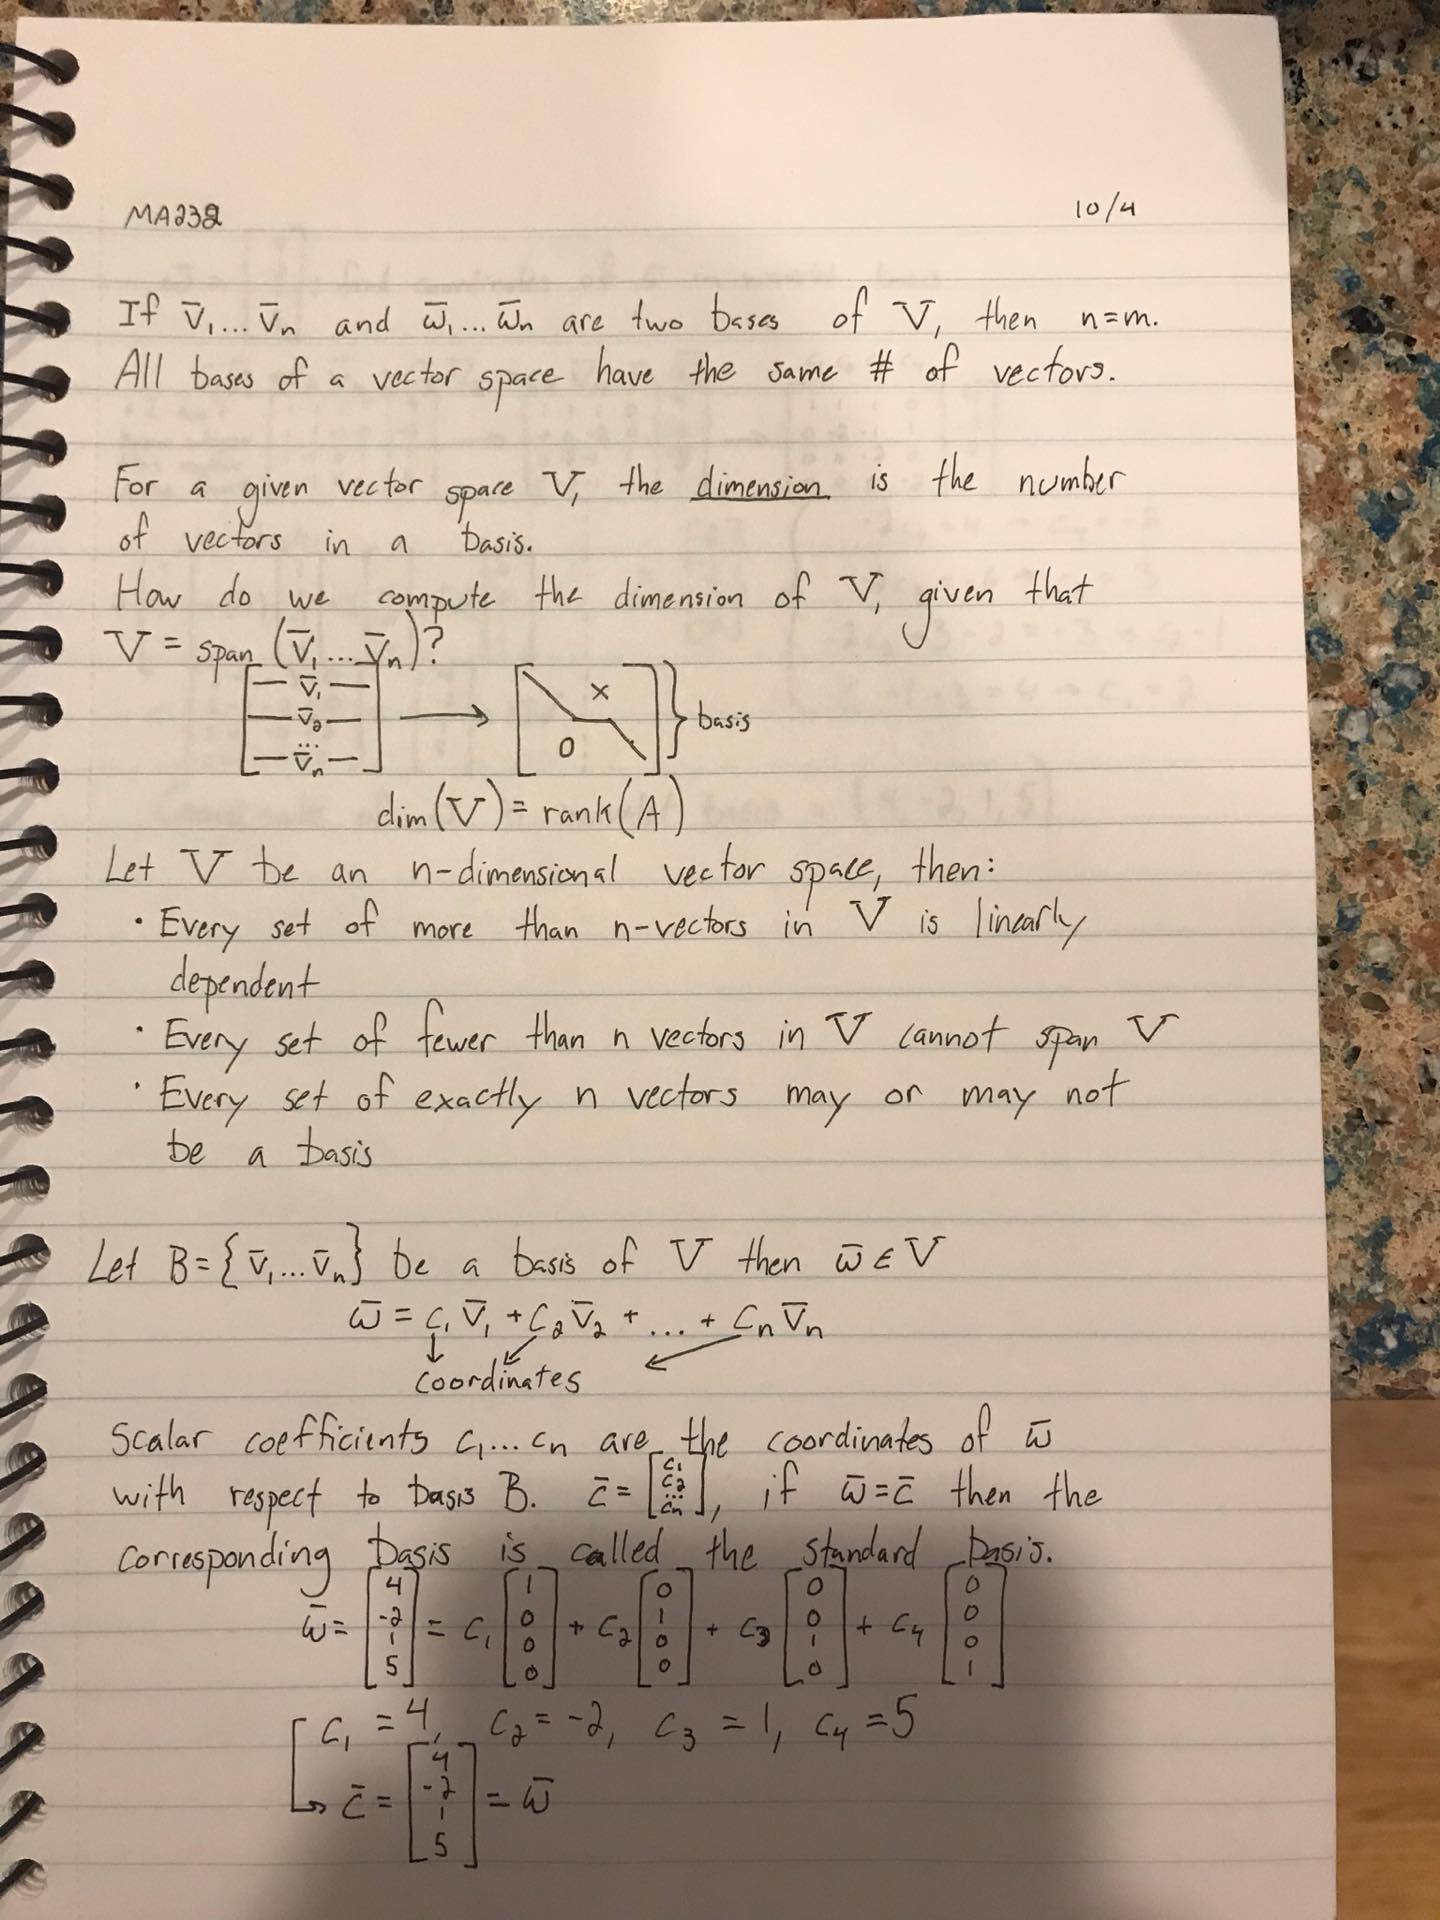 MA232 10/4
If v̄₁...v̄ₙ and w̄₁...w̄ₙ are two bases of V, then n=m.
All bases of a vector space have the same # of vectors.
For a given vector space V, the dimension is the number
of vectors in a basis.
How do we compute the dimension of V, given that
V = span (v̄₁...v̄ₙ)?
[— v̄₁ —
— v̄₂ —
...
— v̄ₙ —] → [x
0] } basis
dim(V) = rank(A)
Let V be an n-dimensional vector space, then:
· Every set of more than n-vectors in V is linearly
dependent
· Every set of fewer than n vectors in V cannot span V
· Every set of exactly n vectors may or may not
be a basis
Let B = {v̄₁...v̄ₙ} be a basis of V then w̄ ∈ V
w̄ = c₁v̄₁ + c₂v̄₂ + ... + cₙv̄ₙ
↓ ↙ ↙
coordinates
Scalar coefficients c₁...cₙ are the coordinates of w̄
with respect to basis B. c̄ = [c₁ c₂ ... cₙ], if w̄ = c̄ then the
corresponding basis is called the standard basis.
w̄ = [4 -2 1 5] = c₁ [1 0 0 0] + c₂ [0 1 0 0] + c₃ [0 0 1 0] + c₄ [0 0 0 1]
c₁ = 4, c₂ = -2, c₃ = 1, c₄ = 5
↳ c̄ = [4 -2 1 5] = w̄